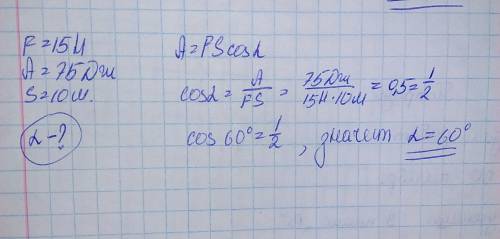 F = 15Н
A = 75Дж
S = 10м.
α - ?
A = FS cosα
cosα = A/FS = 75Дж/15Н·10м = 0,5 = 1/2
cos 60° = 1/2, значит α = 60°